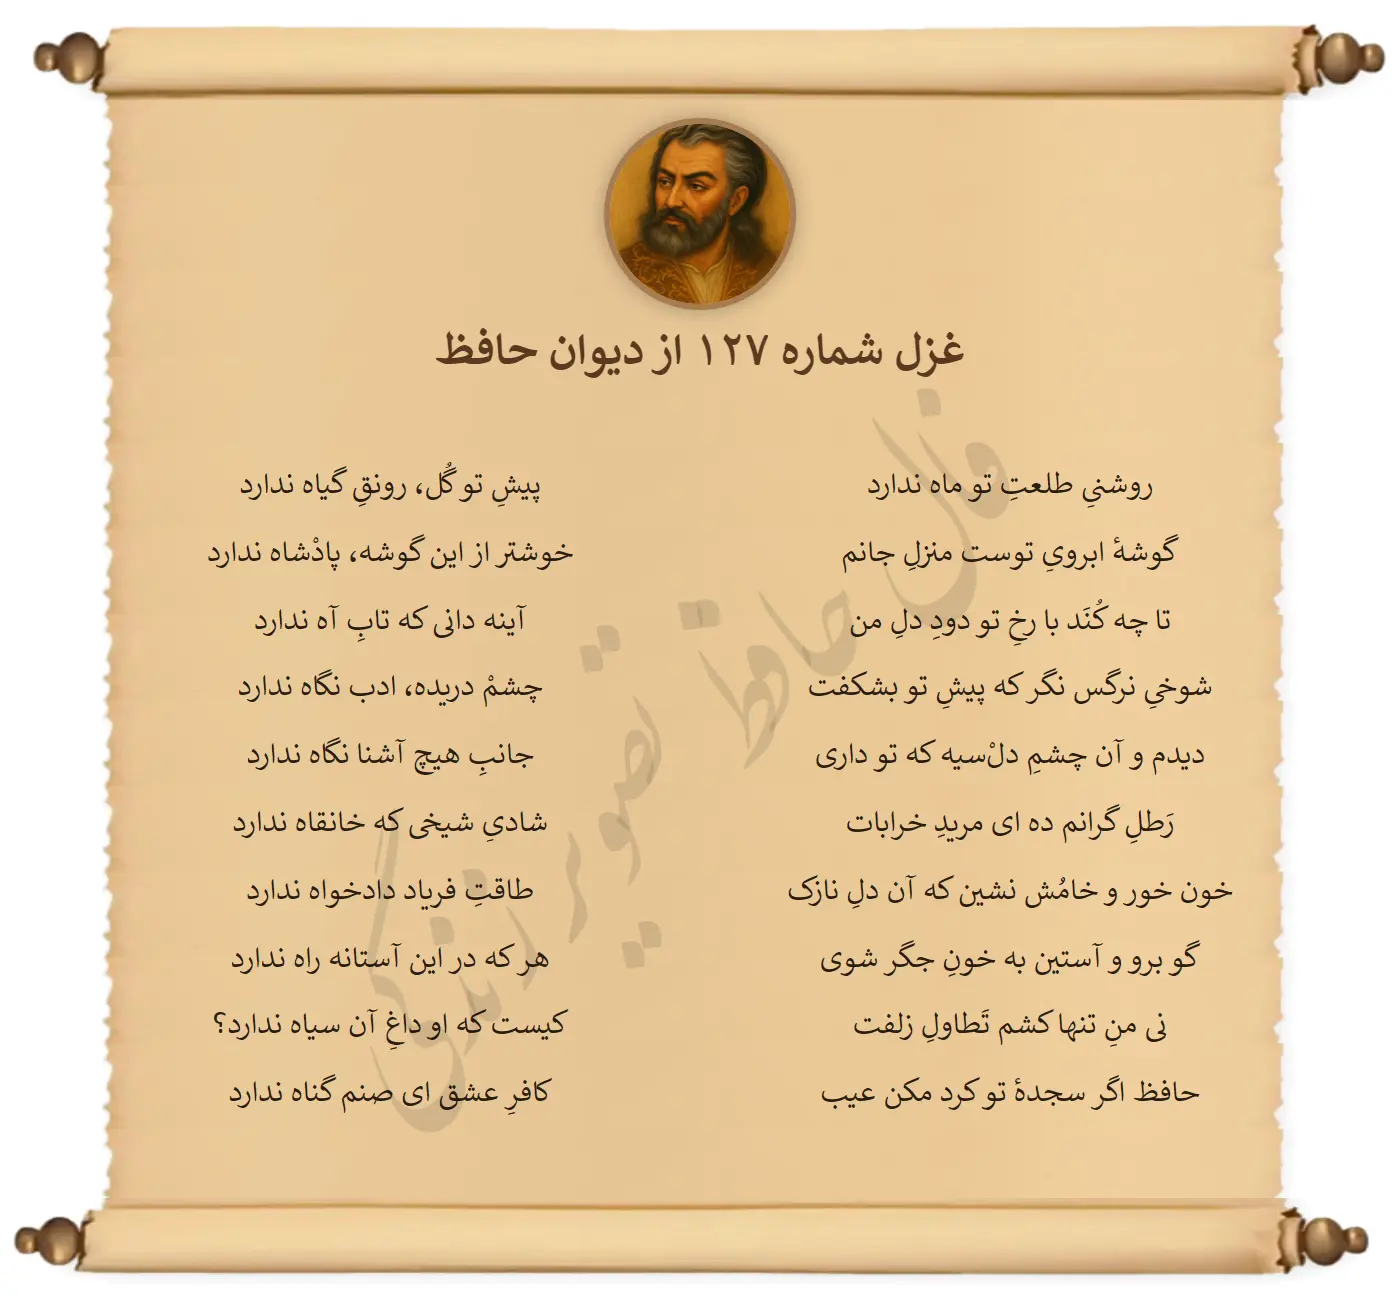 غزل شماره ۱۲۷ از دیوان حافظ
روشنیِ طلعتِ تو ماه ندارد
پیشِ تو گُل، رونقِ گیاه ندارد
گوشهٔ ابرویِ توست منزلِ جانم
خوشتر از این گوشه، پادْشاه ندارد
تا چه کُنَد با رخِ تو دودِ دلِ من
آینه دانی که تابِ آه ندارد
شوخیِ نرگس نگر که پیشِ تو بشکفت
چشمْ دریده، ادب نگاه ندارد
دیدم و آن چشمِ دل‌ْسیه که تو داری
جانبِ هیچ آشنا نگاه ندارد
رَطلِ گرانم ده ای مریدِ خرابات
شادیِ شیخی که خانقاه ندارد
خون خور و خامُش نشین که آن دلِ نازک
طاقتِ فریاد دادخواه ندارد
گو برو و آستین به خونِ جگر شوی
هر که در این آستانه راه ندارد
نی منِ تنها کشم تَطاولِ زلفت
کیست که او داغِ آن سیاه ندارد؟
حافظ اگر سجدهٔ تو کرد مکن عیب
کافرِ عشق ای صنم گناه ندارد
فال حافظ تصویر زندگی